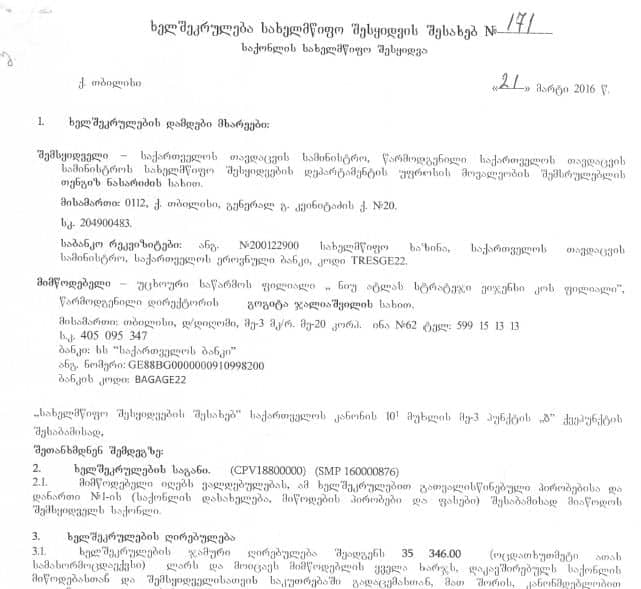 ხელშეკრულება სახელმწიფო შესყიდვის შესახებ № 171
საქონლის სახელმწიფო შესყიდვა
ქ. თბილისი «21» მარტი 2016 წ.
1. ხელშეკრულების დამდები მხარეები:
შემსყიდველი – საქართველოს თავდაცვის სამინისტრო, წარმოდგენილი საქართველოს თავდაცვის
სამინისტროს სახელმწიფო შესყიდვების დეპარტამენტის უფროსის მოვალეობის შემსრულებლის
თენგიზ ნასარიძის სახით.
მისამართი: 0112, ქ. თბილისი, გენერალ გ. კვინიტაძის ქ. №20.
სკ. 204900483.
საბანკო რეკვიზიტები: ანგ. №200122900 სახელმწიფო ხაზინა, საქართველოს თავდაცვის
სამინისტრო, საქართველოს ეროვნული ბანკი, კოდი TRESGE22.
მიმწოდებელი – უცხოური საწარმოს ფილიალი „ ნიუ ატლას სტრატეჯი ეიჯენსი კოს ფილიალი”,
წარმოდგენილი დირექტორის გოგიტა ჯალიაშვილის სახით.
მისამართი: თბილისი, დ/დიღომი, მე-3 მ/რ. მე-20 კორპ. ინა №62 ტელ: 599 15 13 13
ს.კ. 405 095 347
ბანკი: სს “საქართველოს ბანკი”
ანგ. ნომერი: GE88BG0000000910998200
ბანკის კოდი: BAGAGE22
„სახელმწიფო შესყიდვების შესახებ” საქართველოს კანონის 10¹ მუხლის მე-3 პუნქტის „ბ” ქვეპუნქტის
შესაბამისად,
შეთანხმდნენ შემდეგზე:
2. ხელშეკრულების საგანი. (CPV18800000) (SMP 160000876)
2.1. მიმწოდებელი იღებს ვალდებულებას, ამ ხელშეკრულებით გათვალისწინებული პირობებისა და
დანართი №1-ის (საქონლის დასახელება, მიწოდების პირობები და ფასები) შესაბამისად მიაწოდოს
შემსყიდველს საქონელი.
3. ხელშეკრულების ღირებულება
3.1. ხელშეკრულების ჯამური ღირებულება შეადგენს 35 346.00 (ოცდათხუთმეტი ათას
სამასორმოცდაექვსი) ლარს და მოიცავს მიმწოდებლის ყველა ხარჯს, დაკავშირებულს საქონლის
მიწოდებასთან და შემსყიდველისათვის საკუთრებაში გადაცემასთან, მათ შორის, კანონმდებლობით